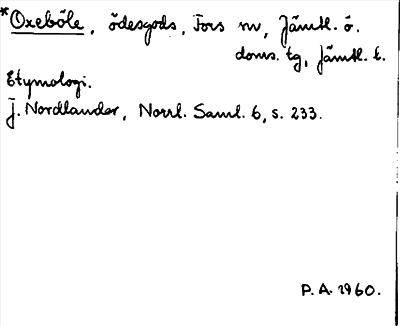 *Oxeböle, ödesgods, Fors sn, Jämtl. ö.
doms. tg, Jämtl. l.
Etymologi.
J. Nordlander, Norrl. Saml. 6, s. 233.
P.A. 1960.